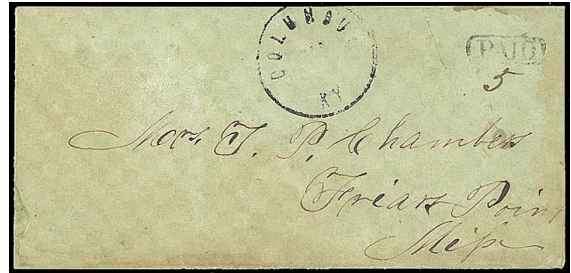 COLUMBUS
KY
PAID
5
Mrs. T. P. Chambers
Friars Point
Miss